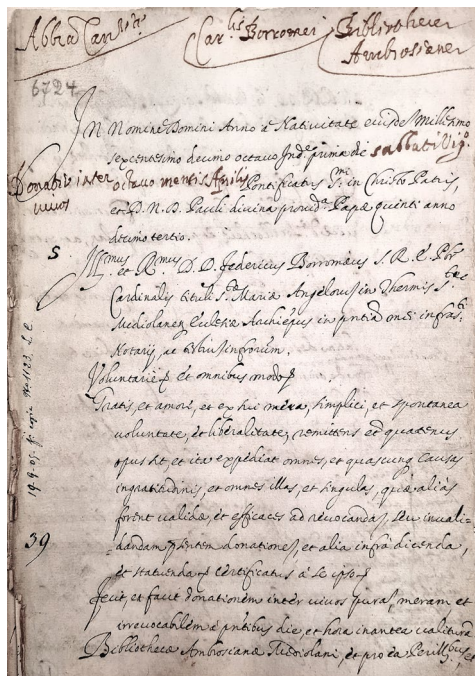 Abbra Can.ris
Car.lis Borromei
Bibliothecæ
Ambrosianæ
6724
In Nomine Domini Anno à Nativitate eiusdē Millesimo
sexcentesimo decimo octavo Ind.e prima die sabbati Vig.o
Donatio inter octavo mensis Aprilis Pontificatus S.mi in Christo Patris,
vivos
et D. N. D. Pauli divina provid.a Papæ Quinti anno
decimo tertio.
S Ill.mus
et R.mus D. D. Federicus Borromæus S. R. E. Pbr
Cardinalis tituli S.tæ Mariæ Angelorū in Thermis S.tæ
Mediolanen Ecclesiæ Archiepus in pñtia mei infras.ti
Notarij, ac testiū infrorum.
Voluntariè et omnibus modo
Gratis, et amore, et ex sui mera, simplici, et spontanea
voluntate, et liberalitate, remittens et quatenus
opus sit, et ita expediat omnes, et quascunq causas
ingratitudinis, et omnes illas, et singulas, quæ alias
forent validæ, et efficaces ad revocandas, seu invali-
dandam pñtem donationē, et alia infra dicenda,
et statuenda certificatus à se ipso
fecit, et facit donationem inter vivos puram, meram et
irrevocabilem à pñtibus die, et hora inantea valituram
Bibliothecæ Ambrosianæ Mediolani, et pro ea Perill.bus, et
39